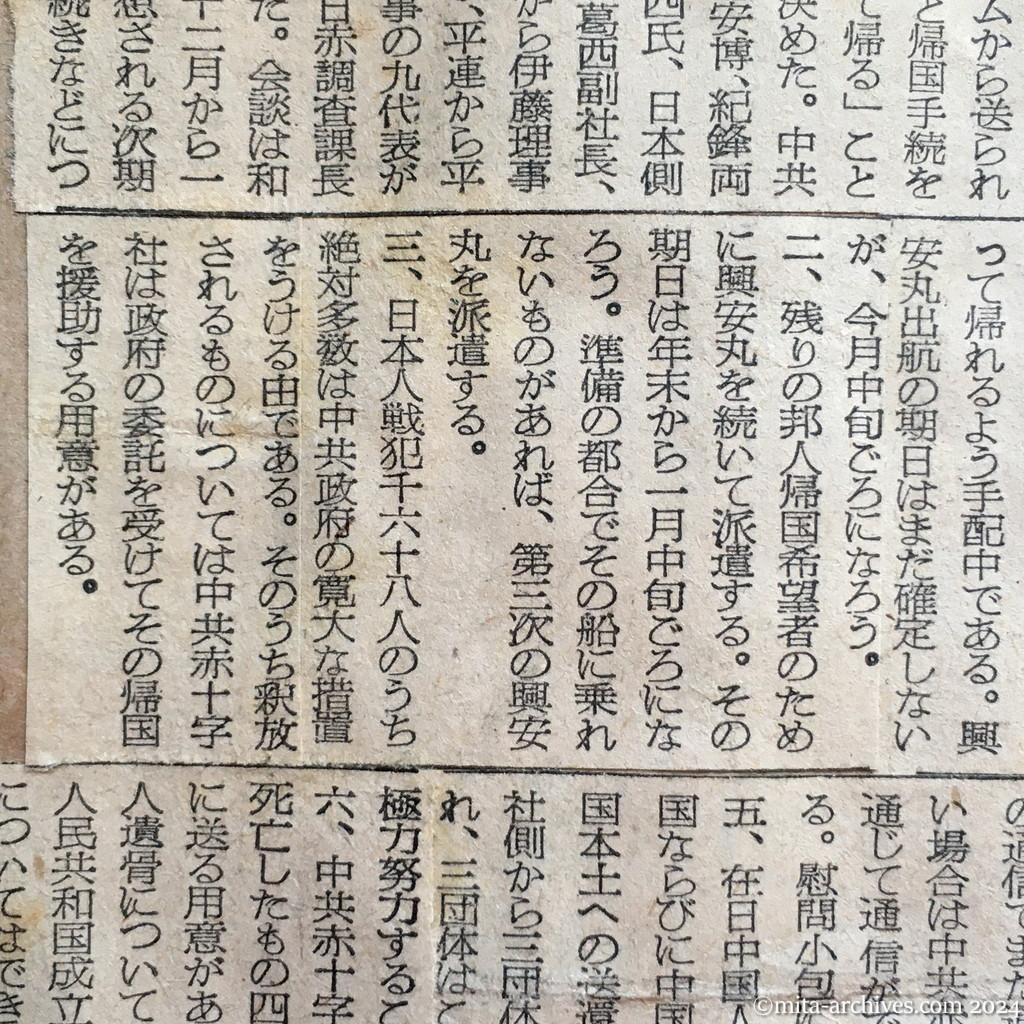 ムから送られ
と帰国手続を
て帰る」こと
決めた。中共
安博、紀鋒両
四氏、日本側
葛西副社長、
から伊藤理事
、平連から平
事の九代表が
日赤調査課長
た。会談は和
十二月から一
想される次期
続きなどにつ
って帰れるよう手配中である。興
安丸出航の期日はまだ確定しない
が、今月中旬ごろになろう。
二、残りの邦人帰国希望者のため
に興安丸を続いて派遣する。その
期日は年末から一月中旬ごろにな
ろう。準備の都合でその船に乗れ
ないものがあれば、第三次の興安
丸を派遣する。
三、日本人戦犯千六十八人のうち
絶対多数は中共政府の寛大な措置
をうける由である。そのうち釈放
されるものについては中共赤十字
社は政府の委託を受けてその帰国
を援助する用意がある。
の通信でまた
い場合は中共
通じて通信が
る。慰問小包
五、在日中国人
国ならびに中国
国本土への送還
社側から三団体
れ、三団体はこ
極力努力するこ
六、中共赤十字
死亡したもの四
に送る用意があ
人遺骨について
人民共和国成立
についてはでき
©mita-archives.com 2024